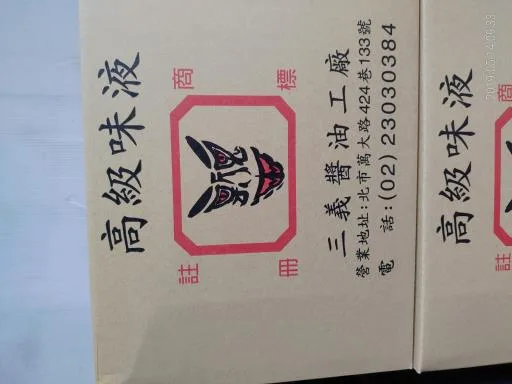 高級味液
商標
註冊
三義醬油工廠
營業地址:北市萬大路424巷133號
電 話:(02)23030384
高級味液
商
註